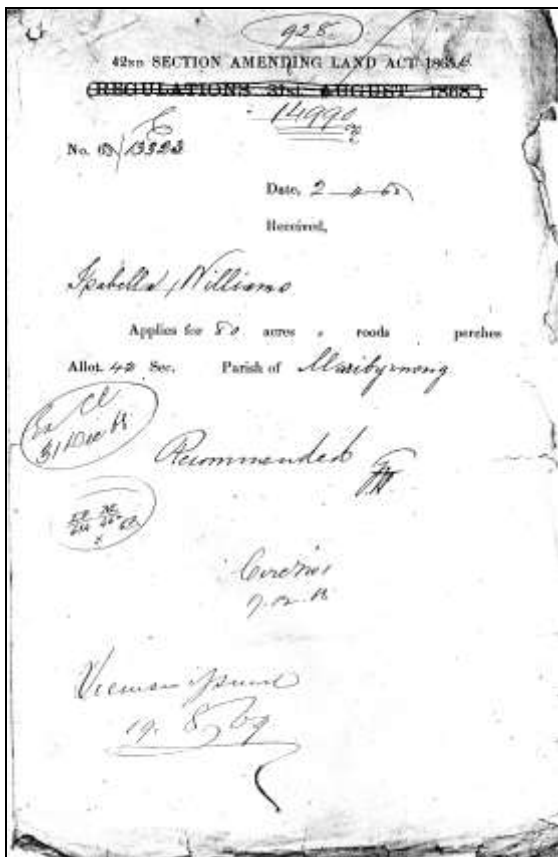 928
42ND SECTION AMENDING LAND ACT 1865.
(REGULATIONS 31st AUGUST 1868)
14990
No. 68/13323
Date, 2
Received,
Isabella Williams
Applies for 80 acres 0 roods perches
Allot. 42 Sec. Parish of Maribyrnong
31 Dec 68
Recommended
19. 8. 69